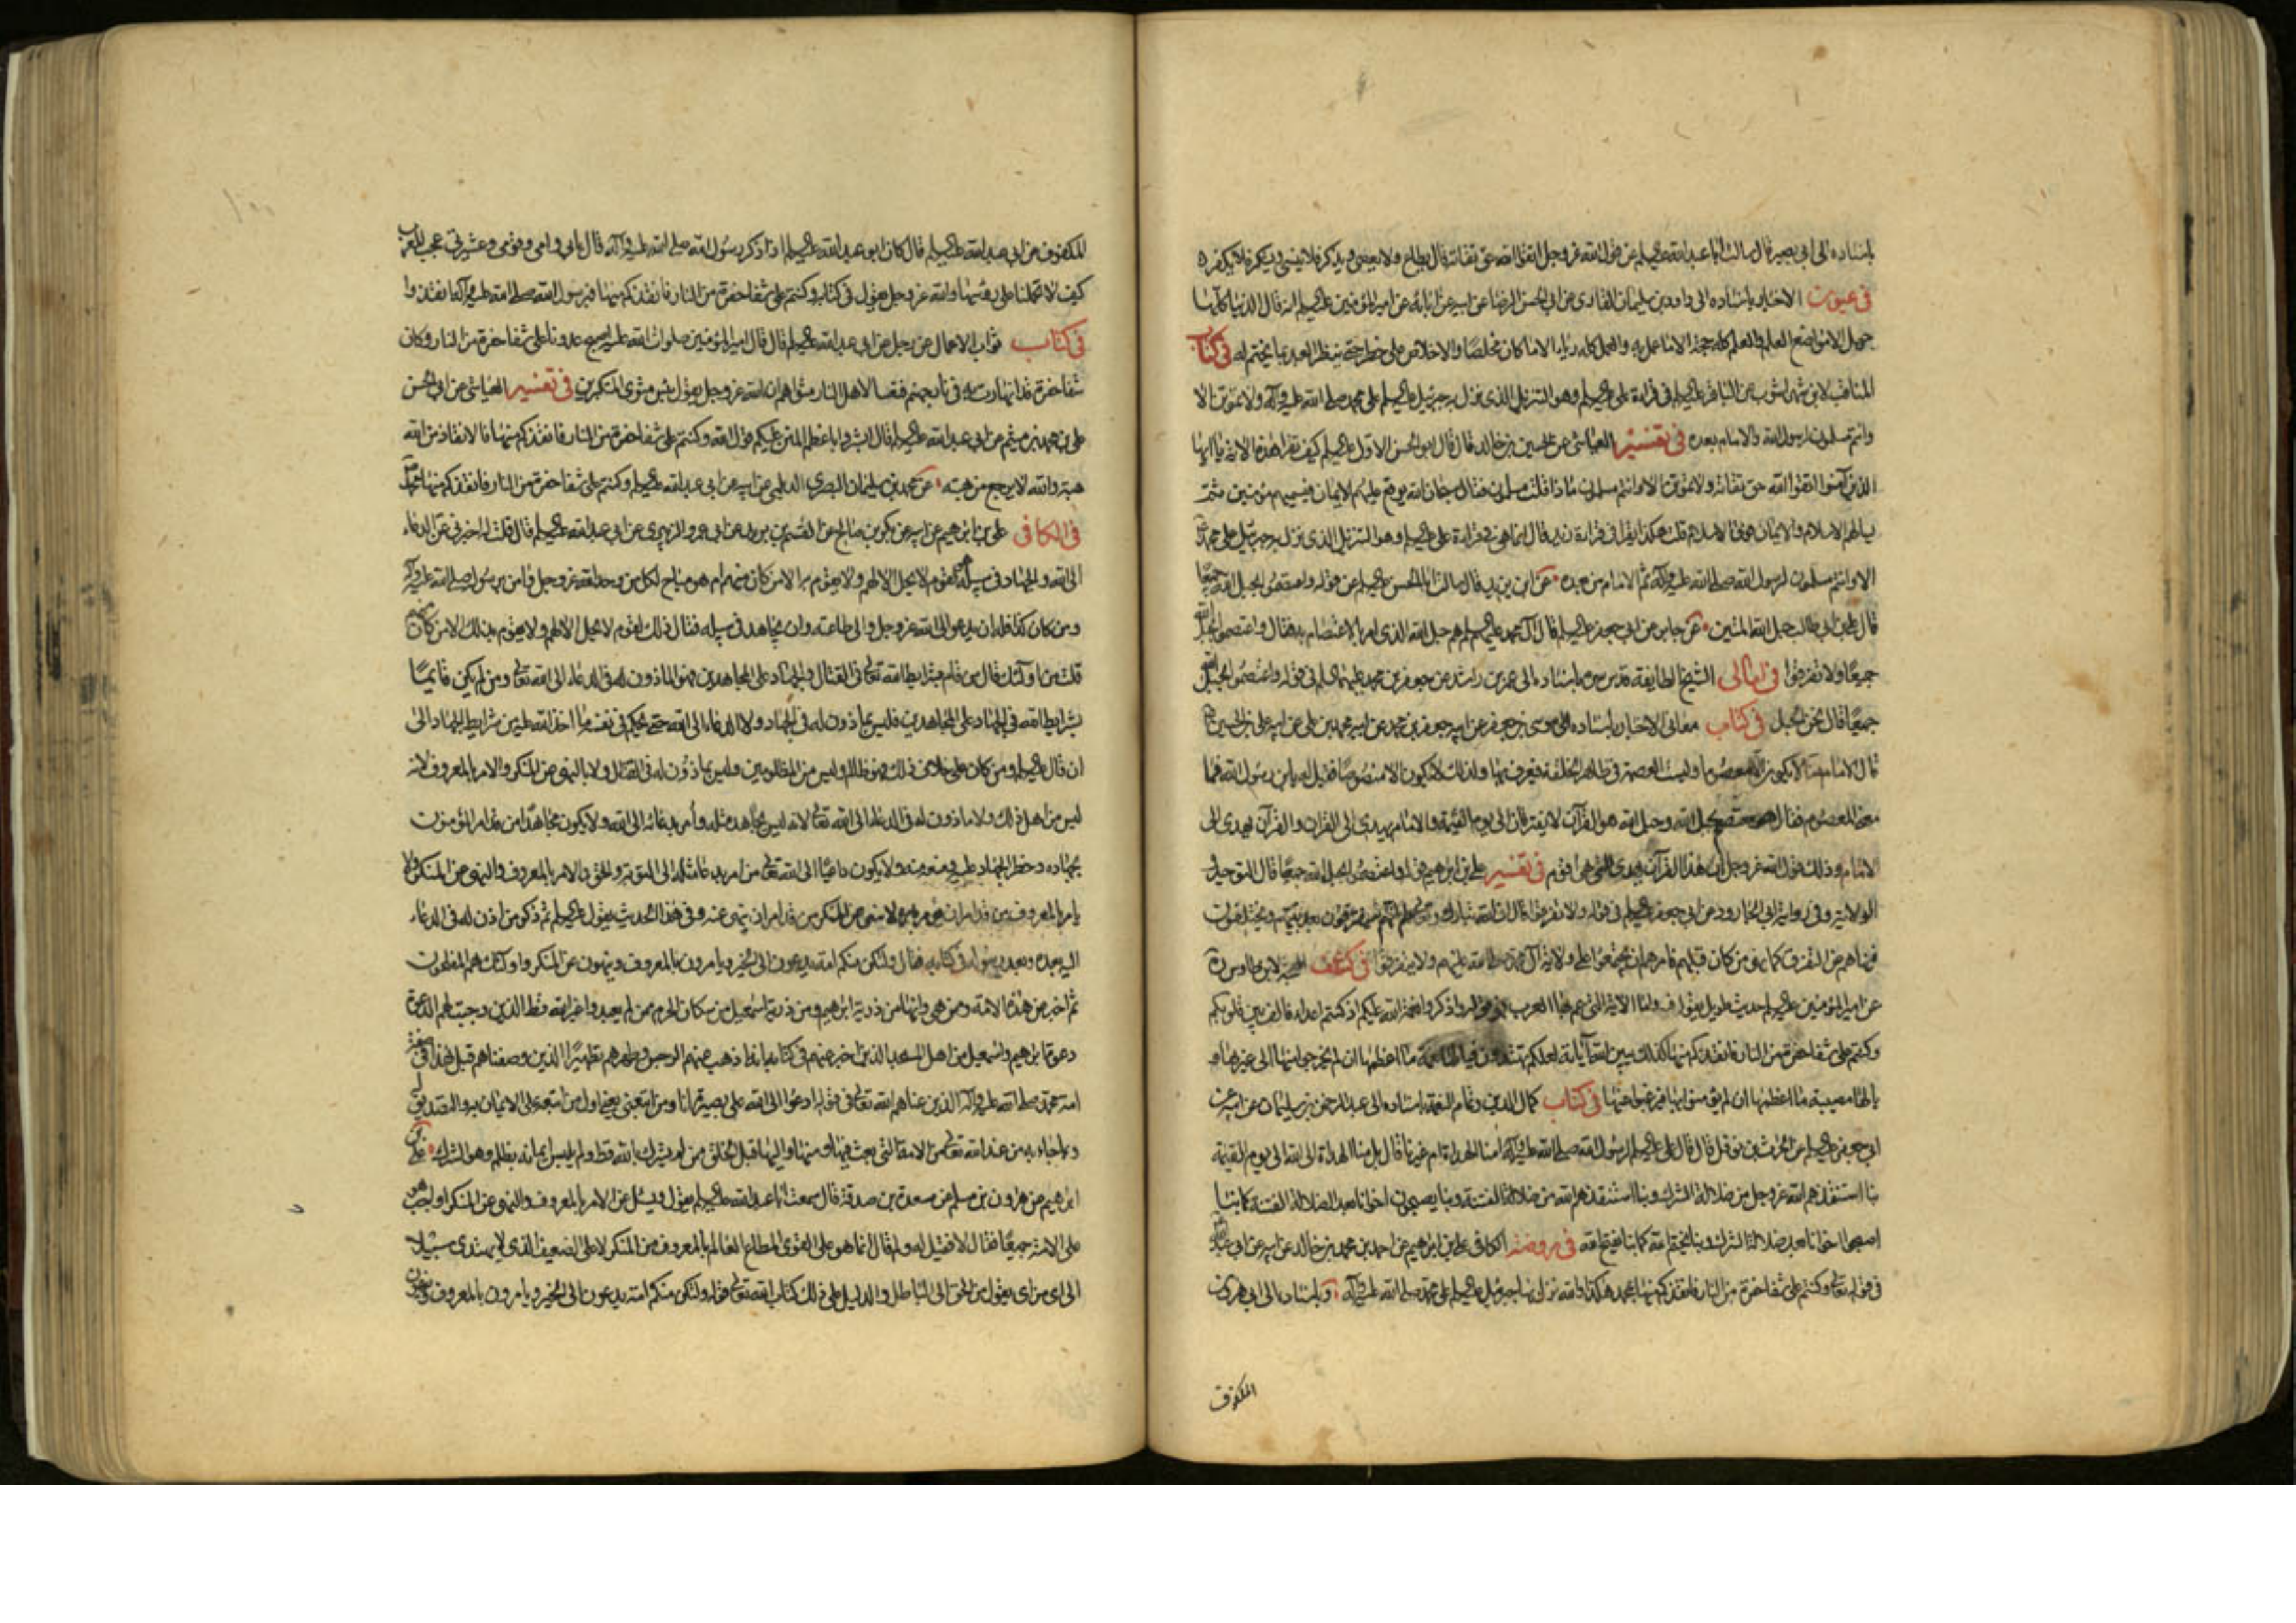 باسناده الى ابى بصير قال سالت ابا عبد الله عليه السلم عن قول الله عز وجل اتقوا الله حق تقاته قال يطاع ولا يعصى ويذكر فلا ينسى ويشكر فلا يكفر
فى عيون الاخبار باسناده الى داود بن سليمان الغازى عن ابى الحسن الرضا عن ابيه عن ابائه عن امير المؤمنين عليه السلم انه قال الدنيا كلها
جهل الا مواضع العلم والعلم كله حجة الا ما عمل به والعمل كله رياء الا ما كان مخلصا والاخلاص على خطر حتى ينظر العبد بما يختم له فى كتاب
المناقب لابن شهراشوب عن الباقر عليه السلم فى قراءة على عليه السلم وهو التنزيل الذى نزل به جبرئيل عليه السلم على محمد صلى الله عليه وآله ولا تموتن الا
وانتم مسلمون لرسول الله والامام بعده فى تفسير العياشى عن الحسين بن خالد قال قال ابو الحسن الاول عليه السلم كيف تقرأ هذه الاية يا ايها
الذين آمنوا اتقوا الله حق تقاته ولا تموتن الا وانتم مسلمون ماذا قلت مسلمون فقال سبحان الله يوقع عليهم الايمان فيسميهم مؤمنين ثم
يسالهم الاسلام والايمان فوق الاسلام قلت هكذا يقرأ فى قراءة زيد قال انما هى فى قراءة على عليه السلم وهو التنزيل الذى نزل به جبرئيل على محمد
الا وانتم مسلمون لرسول الله صلى الله عليه وآله ثم الامام من بعده عن ابن يزيد قال سالت ابا الحسن عليه السلم عن قوله واعتصموا بحبل الله جميعا
قال على بن ابى طالب حبل الله المتين عن جابر عن ابى جعفر عليه السلم قال آل محمد عليهم السلم هم حبل الله الذى امر بالاعتصام به فقال واعتصموا بحبل الله
جميعا ولا تفرقوا فى امالى الشيخ الطايفة قدس سره باسناده الى عمر بن راشد عن جعفر بن محمد عليهما السلم فى قوله واعتصموا بحبل الله
جميعا قال نحن الحبل فى كتاب معانى الاخبار باسناده الى موسى بن جعفر عن ابيه جعفر بن محمد عن ابيه محمد بن على عن ابيه على بن الحسين
قال الامام منا لا يكون الا معصوما وليست العصمة فى ظاهر الخلقة فيعرف بها ولذلك لا يكون الا منصوصا فقيل له يا ابن رسول الله فما
معنى المعصوم فقال هو معتصم بحبل الله وحبل الله هو القرآن لا يفترقان الى يوم القيمة والامام يهدى الى القران والقرآن يهدى الى
الامام وذلك قول الله عز وجل ان هذا القرآن يهدى للتى هى اقوم فى تفسير على بن ابراهيم قوله واعتصموا بحبل الله جميعا قال التوحيد
الولاية وفى رواية ابى الجارود عن ابى جعفر عليه السلم فى قوله ولا تفرقوا قال ان الله تبارك وتعالى علم انهم سيفترقون بعد نبيهم ويختلفون
فنهاهم عن التفرق كما نهى من كان قبلهم فامرهم ان يجتمعوا على ولاية آل محمد صلى الله عليهم ولا يتفرقوا فى كشف المحجة لابن طاوس ره
عن امير المؤمنين عليه السلم حديث طويل يقول فيه واما الاية التى عم بها العرب فهو قوله واذكروا نعمة الله عليكم اذ كنتم اعداء فالف بين قلوبكم
وكنتم على شفا حفرة من النار فانقذكم منها كذلك يبين الله آياته لعلكم تهتدون فيا لها نعمة ما اعظمها ان لم يخرجوا منها الى غيرها و
يا لها مصيبة ما اعظمها ان لم يؤمنوا بها فيرغبوا عنها فى كتاب كمال الدين وتمام النعمة باسناده الى عبد الرحمن بن سليمان عن ابيه عن
ابى جعفر عليه السلم عن الحرث بن نوفل قال قال على عليه السلم لرسول الله صلى الله عليه وآله امنا الهداة ام غيرنا قال بل منا الهداة الى الله الى يوم القيمة
بنا استنقذهم الله عز وجل من ضلالة الشرك وبنا استنقذهم الله من ضلالة الفتنة وبنا يصبحون اخوانا بعد الضلالة الفتنة كما بنا
اصبحوا اخوانا بعد ضلالة الشرك وبنا يختم الله كما بنا يفتح الله فى روضة الكافى على بن ابراهيم عن احمد بن محمد بن خالد عن ابيه عن ابى عبد الله
فى قوله تعالى وكنتم على شفا حفرة من النار فانقذكم منها بمحمد هكذا والله نزل بها جبرئيل عليه السلم على محمد صلى الله عليه وآله وباسناده الى ابى هرون
المكفوف
المكفوف عن ابى عبد الله عليه السلم قال كان ابو عبد الله عليه السلم اذا ذكر رسول الله صلى الله عليه وآله قال بابى وامى وقومى وعشيرتى عجب للعرب
كيف لا تحملنا على رؤسها والله عز وجل يقول فى كتابه وكنتم على شفا حفرة من النار فانقذكم منها فبرسول الله صلى الله عليه وآله انقذوا
فى كتاب ثواب الاعمال عن رجل عن ابى عبد الله عليه السلم قال قال امير المؤمنين صلوات الله عليه يصبح عدونا على شفا حفرة من النار وكان
شفا حفرة قد انهارت به فى نار جهنم فتعسا لاهل النار مثواهم ان الله عز وجل يقول بئس مثوى المتكبرين فى تفسير العياشى عن ابى الحسن
على بن محمد بن ميثم عن ابى عبد الله عليه السلم قال ابشروا باعظم المنن عليكم قول الله وكنتم على شفا حفرة من النار فانقذكم منها فالانقاذ من الله
هبة والله لا يرجع من هبته عن محمد بن سليمان البصرى الديلمى عن ابيه عن ابى عبد الله عليه السلم وكنتم على شفا حفرة من النار فانقذكم منها بمحمد
فى الكافى على بن ابراهيم عن ابيه عن بكر بن صالح عن القسم بن بريد عن ابى عمرو الزبيرى عن ابى عبد الله عليه السلم قال قلت له اخبرنى عن الدعاء
الى الله والجهاد فى سبيله أهو لقوم لا يحل الا لهم ولا يقوم به الا من كان منهم ام هو مباح لكل من وحد الله عز وجل وآمن برسول الله صلى الله عليه وآله
ومن كان كذا فله ان يدعو الى الله عز وجل والى طاعته وان يجاهد فى سبيله فقال ذلك لقوم لا يحل الا لهم ولا يقوم بذلك الا من كان منهم
قلت من اولئك قال من قام بشرايط الله تعالى فى القتال والجهاد على المجاهدين فهو الماذون له فى الدعاء الى الله تعالى ومن لم يكن قائما
بشرايط الله فى الجهاد على المجاهدين فليس بماذون له فى الجهاد ولا الدعاء الى الله حتى يحكم فى نفسه ما اخذ الله عليه من شرايط الجهاد الى
ان قال عليه السلم ومن كان على خلاف ذلك فهو ظالم وليس من المظلومين وليس بماذون له فى القتال ولا بالنهى عن المنكر والامر بالمعروف لانه
ليس من اهل ذلك ولا ماذون له فى الدعاء الى الله تعالى لانه ليس يجاهد مثله وأمر بدعائه الى الله ولا يكون مجاهدا من قد امر المؤمنون
بجهاده وحظر الجهاد عليه ومنعه منه ولا يكون داعيا الى الله تعالى من امر بدعاء مثله الى التوبة والحق والامر بالمعروف والنهى عن المنكر ولا
يامر بالمعروف من قد امر ان يؤمر به ولا ينهى عن المنكر من قد امر ان ينهى عنه وفى هذا الحديث يقول عليه السلم ثم ذكر من اذن له فى الدعاء
اليه بعده وبعد رسوله فى كتابه فقال ولتكن منكم امة يدعون الى الخير ويامرون بالمعروف وينهون عن المنكر واولئك هم المفلحون
ثم اخبر عن هذه الامة وممن هى وانها من ذرية ابراهيم ومن ذرية اسمعيل من سكان الحرم ممن لم يعبدوا غير الله قط الذين وجبت لهم الدعوة
دعوة ابراهيم واسمعيل من اهل المسجد الذين اخبر عنهم فى كتابه انه اذهب عنهم الرجس وطهرهم تطهيرا الذين وصفناهم قبل هذا فى صفة
امة محمد صلى الله عليه وآله الذين عناهم الله تعالى فى قوله ادعوا الى الله على بصيرة انا ومن اتبعنى يعنى اول من اتبعه على الايمان به والتصديق
وبما جاء به من عند الله تعالى من الامة التى بعث فيها ومنها واليها قبل الخلق ممن لم يشرك بالله قط ولم يلبس ايمانه بظلم وهو الشرك على بن
ابراهيم عن هرون بن مسلم عن مسعدة بن صدقة قال سمعت ابا عبد الله عليه السلم يقول وسئل عن الامر بالمعروف والنهى عن المنكر اواجب هو
على الامة جميعا فقال لا فقيل له ولم قال انما هو على القوى المطاع العالم بالمعروف من المنكر لا على الضعيف الذى لا يهتدى سبيلا
الى اى من اى يقول من الحق الى الباطل والدليل على ذلك كتاب الله تعالى قوله ولتكن منكم امة يدعون الى الخير ويامرون بالمعروف وينهون